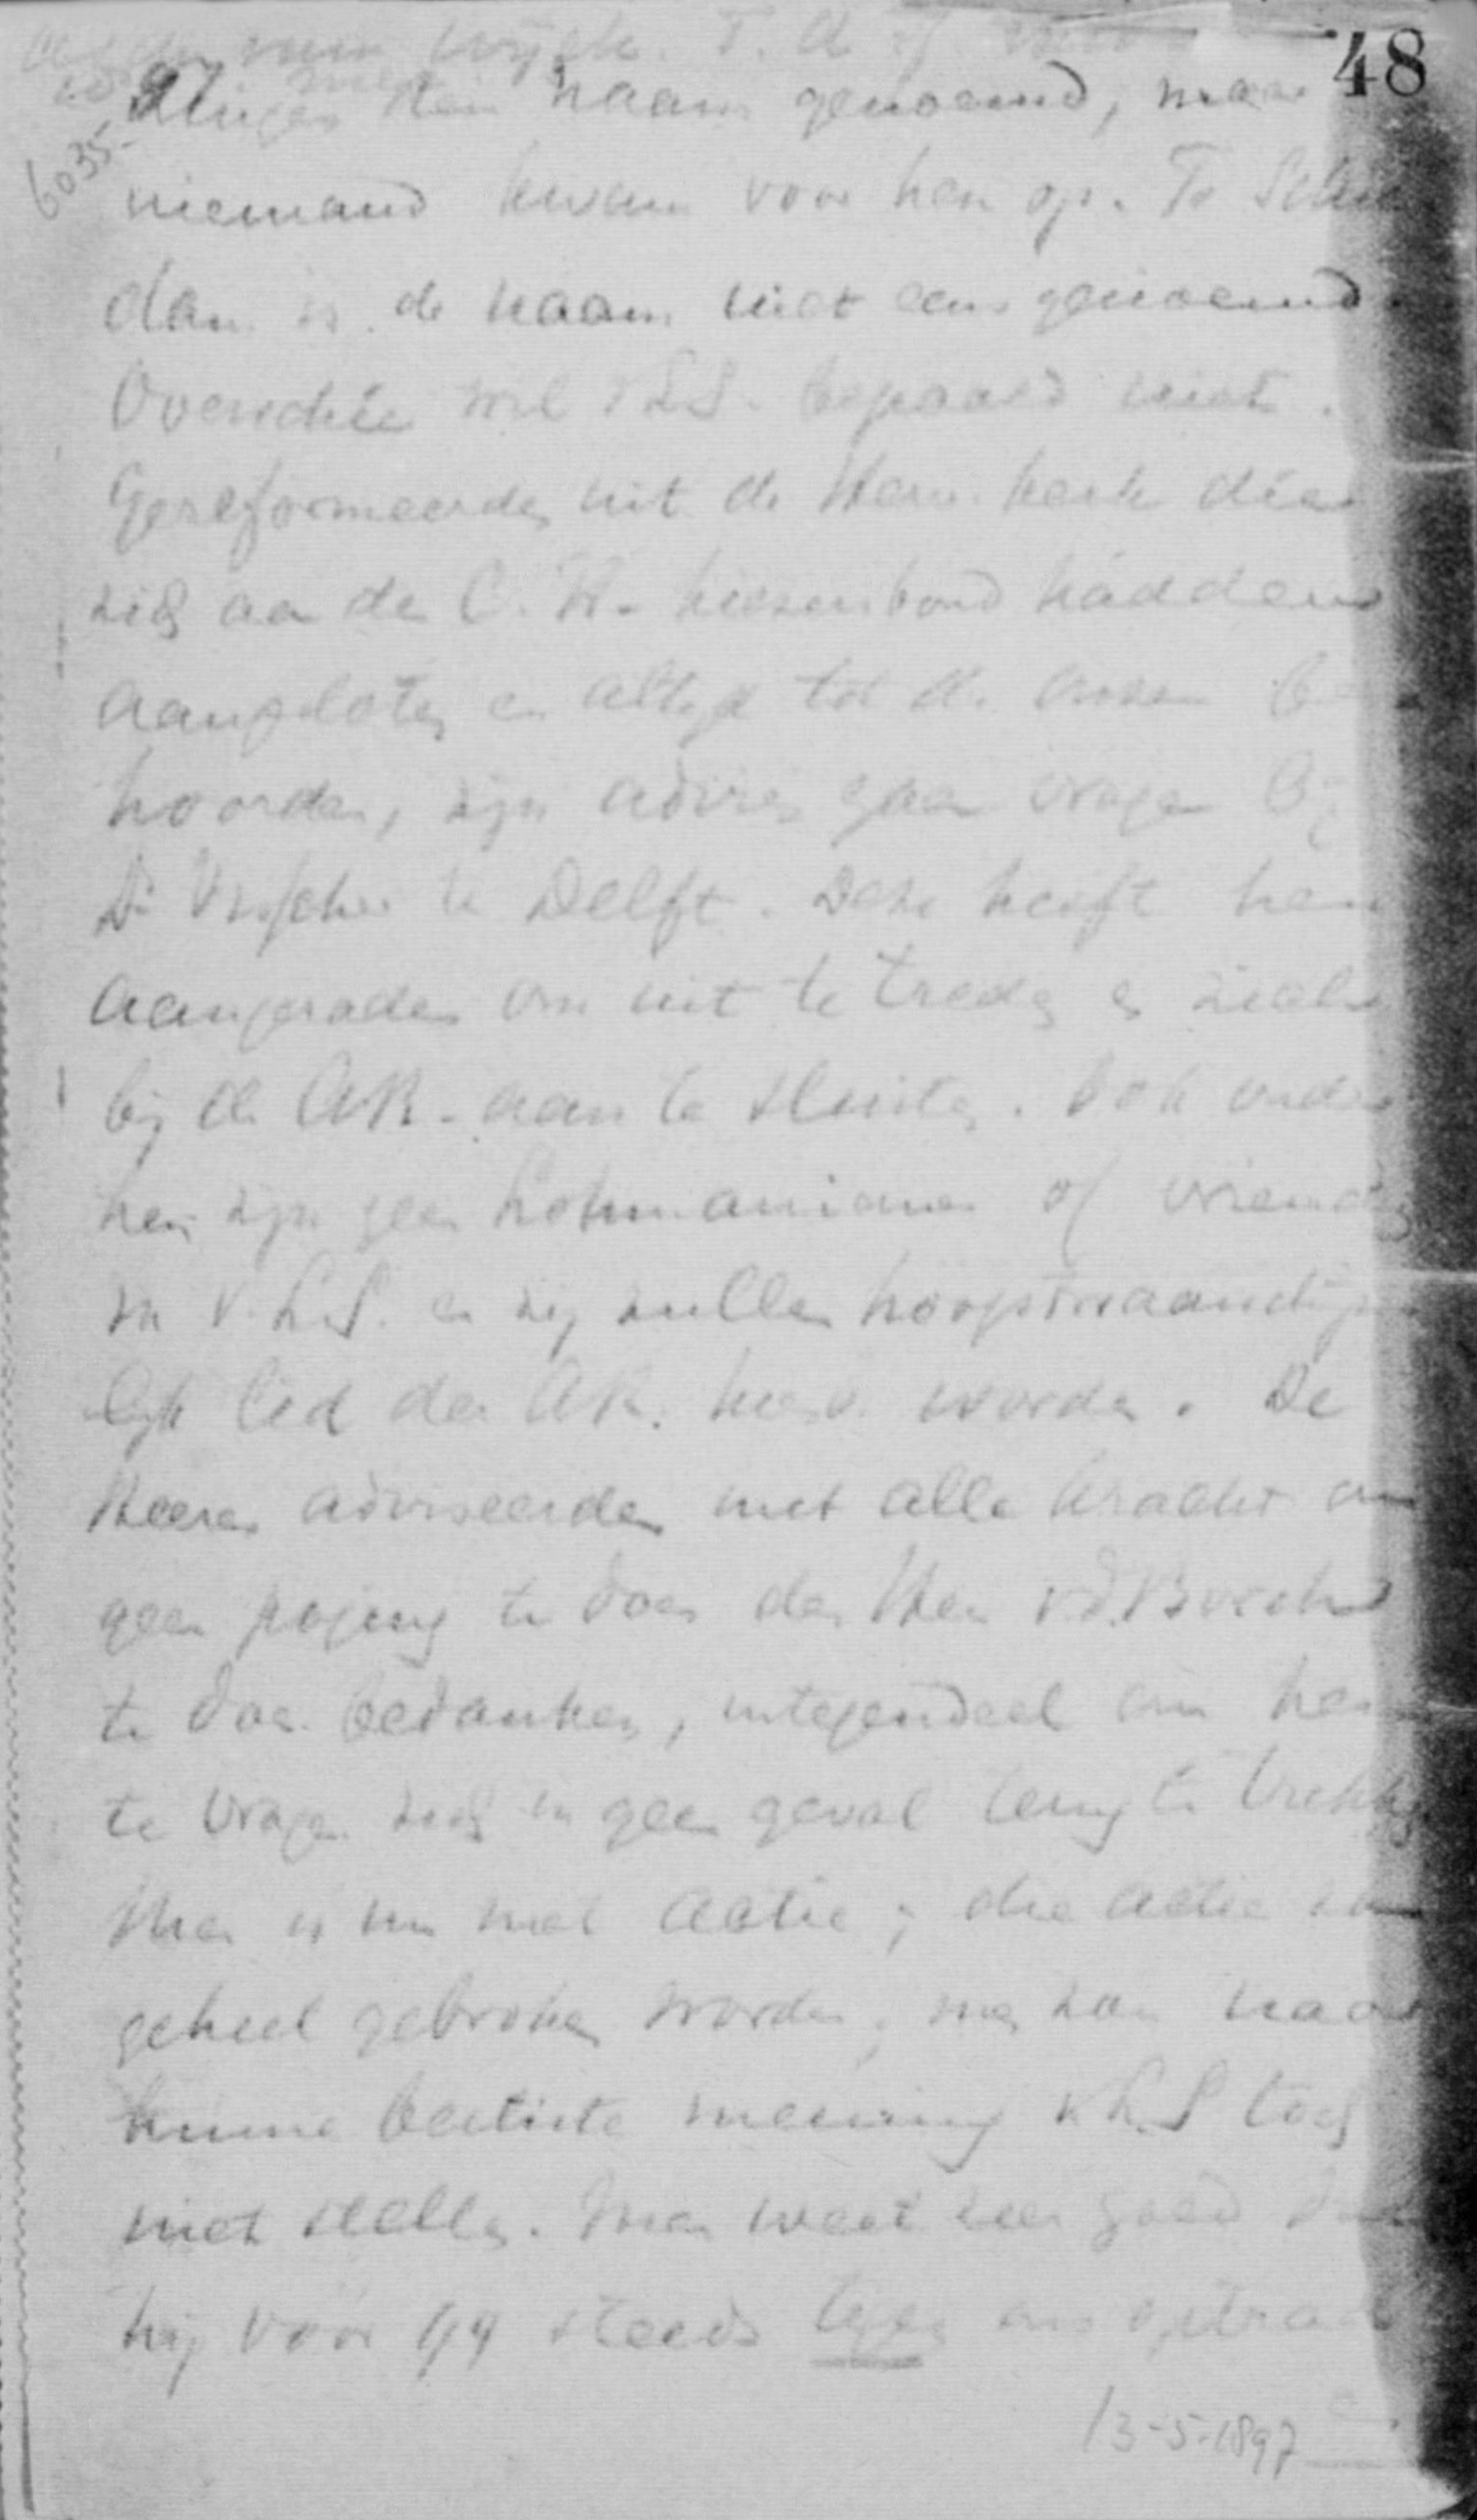 48
6035-
naam genoemd, maar
niemand kwam voor hen op. Te Schie
dam is de naam niet eens genoemd.
Overschie wil VLS. bepaald niet.
Gereformeerden uit de Herv. kerk die
zich aan de C.H. kiezersbond hadden
aangesloten en altijd tot de onzen be
hoorden, zijn advies gaan vragen bij
Dr Visscher te Delft. Deze heeft hen
aangeraden om uit te treden en zich
bij de AR. aan te sluiten. Ook onder
hen zijn geen Lohmanianen of vrienden
v. L.S. en zij zullen hoogstwaarschijn
lijk lid der AR. kiesv. worden. De
Heeren adviseerden met alle kracht om
geen poging te doen den Heer v.d. Borch
te doen bedanken, integendeel om hem
te vragen zich in geen geval terug te trekken
Men is nu met actie; die actie zou
geheel gebroken worden, men zou naar
hunne besliste meening v L.S toch
niet stellen. Men weet zeer goed dat
hij voor 94 steeds tegen ons optrad
13-5-1897